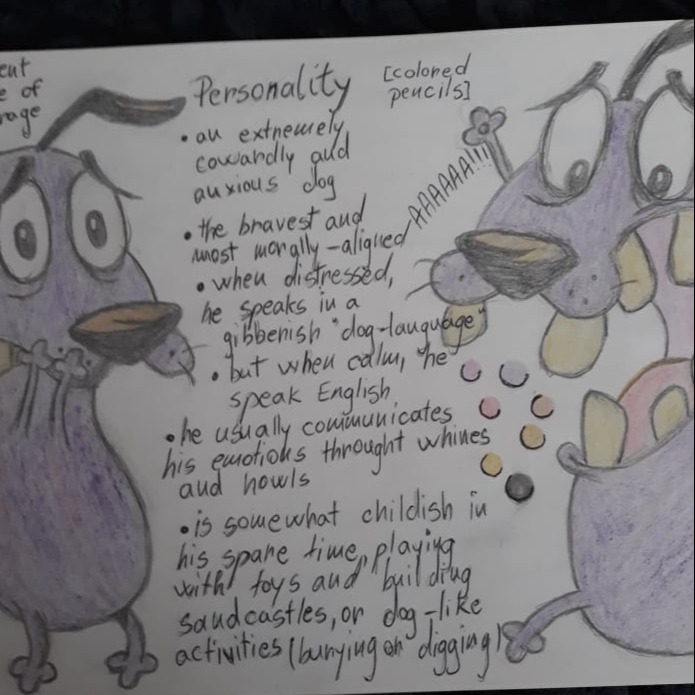 ent
e of
rage
Personality
[colored
pencils]
• an extremely
cowardly and
anxious dog
• the bravest and
most morally-aligned
• when distressed,
he speaks in a
gibberish "dog-language"
• but when calm, he
speak English
• he usually communicates
his emotions throught whines
and howls
• is somewhat childish in
his spare time, playing
with toys and building
sandcastles, or dog-like
activities (burying or digging)
AAAAAA!!!